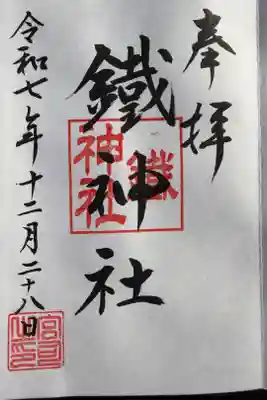 奉拝
鐵神社
鐵神社
令和七年十二月二十八日
宮司之印